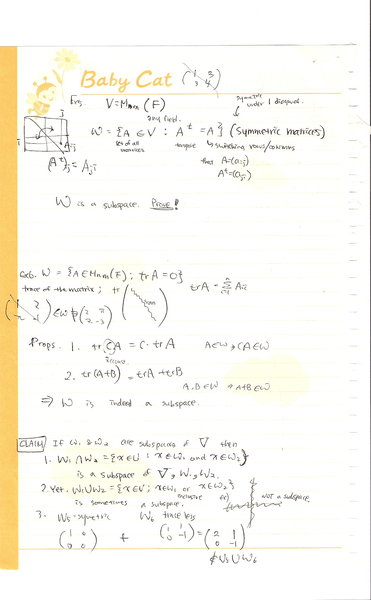 Baby Cat
(1 3
3 4)
Exs. V = Mnxn (F)
any field.
symmetric
under 1 diagonal.
W = {A ∈ V : A^t = A} (Symmetric matrices)
set of all matrices
switching rows/columns
(A^t)ij = Aji
that A = (aij)
A^t = (aji)
W is a subspace. Prove!
W = {A ∈ Mnxn(F) : trA = 0}
trace of the matrix ; tr
trA = Σ Aii
∈ W
Props. 1. tr CA = C · trA
A ∈ W → CA ∈ W
2. tr(A+B) = trA + trB
A, B ∈ W → A+B ∈ W
⇒ W is indeed a subspace.
CLAIM If W1 & W2 are subspaces of V then
1. W1 ∩ W2 = {x ∈ V : x ∈ W1 and x ∈ W2}
is a subspace of V, W1, W2.
2. Yet, W1 ∪ W2 = {x ∈ V : x ∈ W1 or x ∈ W2}
inclusive
is sometimes a subspace.
NOT a subspace
3. W5 - symetric W6 trace less
(1 0
0 0) + (1 1
1 -1) = (2 1
0 -1)
∉ W5 ∪ W6